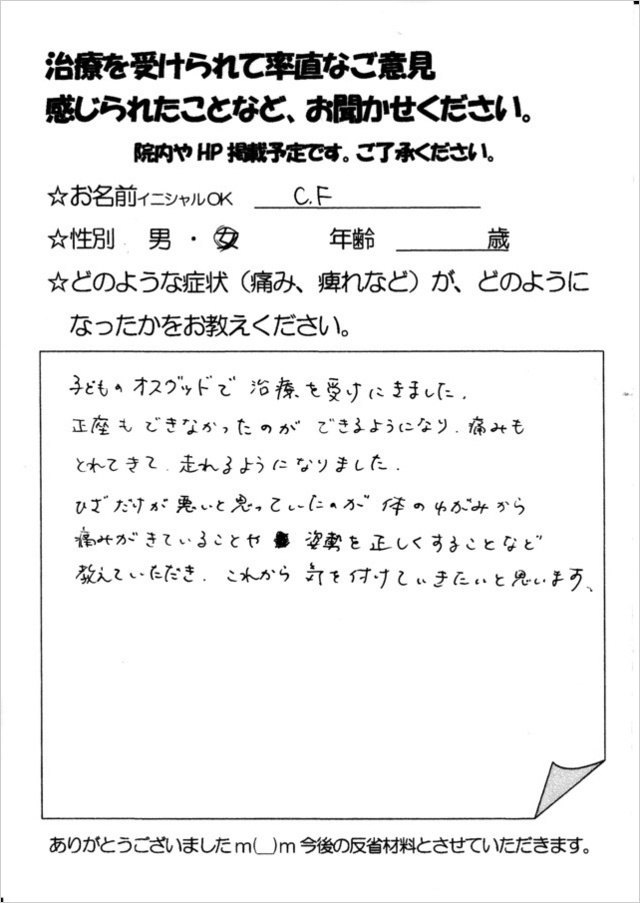 治療を受けられて率直なご意見
感じられたことなど、お聞かせください。
院内やHP掲載予定です。ご了承ください。
☆お名前イニシャルOK C.F
☆性別 男・女 年齢 歳
☆どのような症状（痛み、痺れなど）が、どのように
なったかをお教えください。
子どものオスグッドで治療を受けにきました.
正座もできなかったのができるようになり.痛みも
とれてきて.走れるようになりました.
ひざだけが悪いと思っていたのが体のゆがみから
痛みがきていることや姿勢を正しくすることなど
教えていただき.これから気を付けていきたいと思います、
ありがとうございましたm(__)m今後の反省材料とさせていただきます。